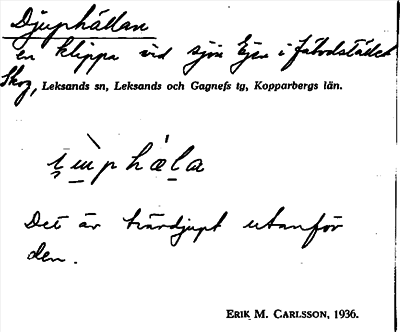 Djuphällan
en klippa vid sjön Ejen i fäbodstället
Skog, Leksands sn, Leksands och Gagnefs tg, Kopparbergs län.
Det är tvärdjupt utanför
den.
ERIK M. CARLSSON, 1936.